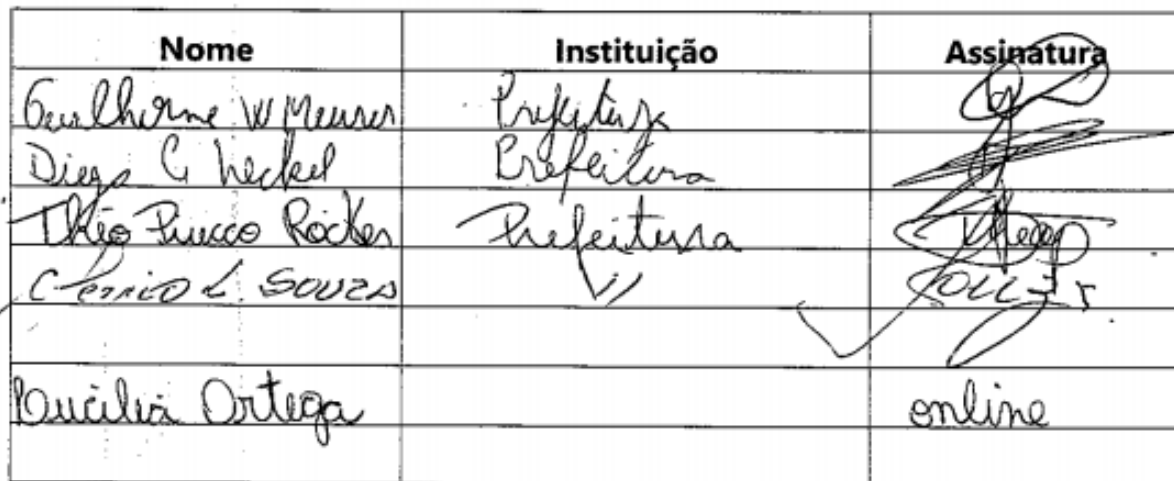 Nome Instituição Assinatura
Guilherme W Meurer Prefeitura
Diego G Heckel Prefeitura
Théo Pirucco Röcker Prefeitura
L. SOUZA \\
Lucilia Ortega online